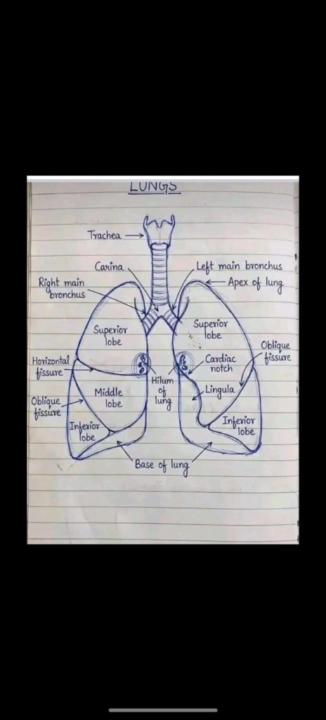 LUNGS
Trachea
Carina
Left main bronchus
Right main
bronchus
Apex of lung
Superior
lobe
Superior
lobe
Oblique
fissure
Horizontal
fissure
Cardiac
notch
Hilum
of
lung
Middle
lobe
Lingula
Oblique
fissure
Inferior
lobe
Inferior
lobe
Base of lung